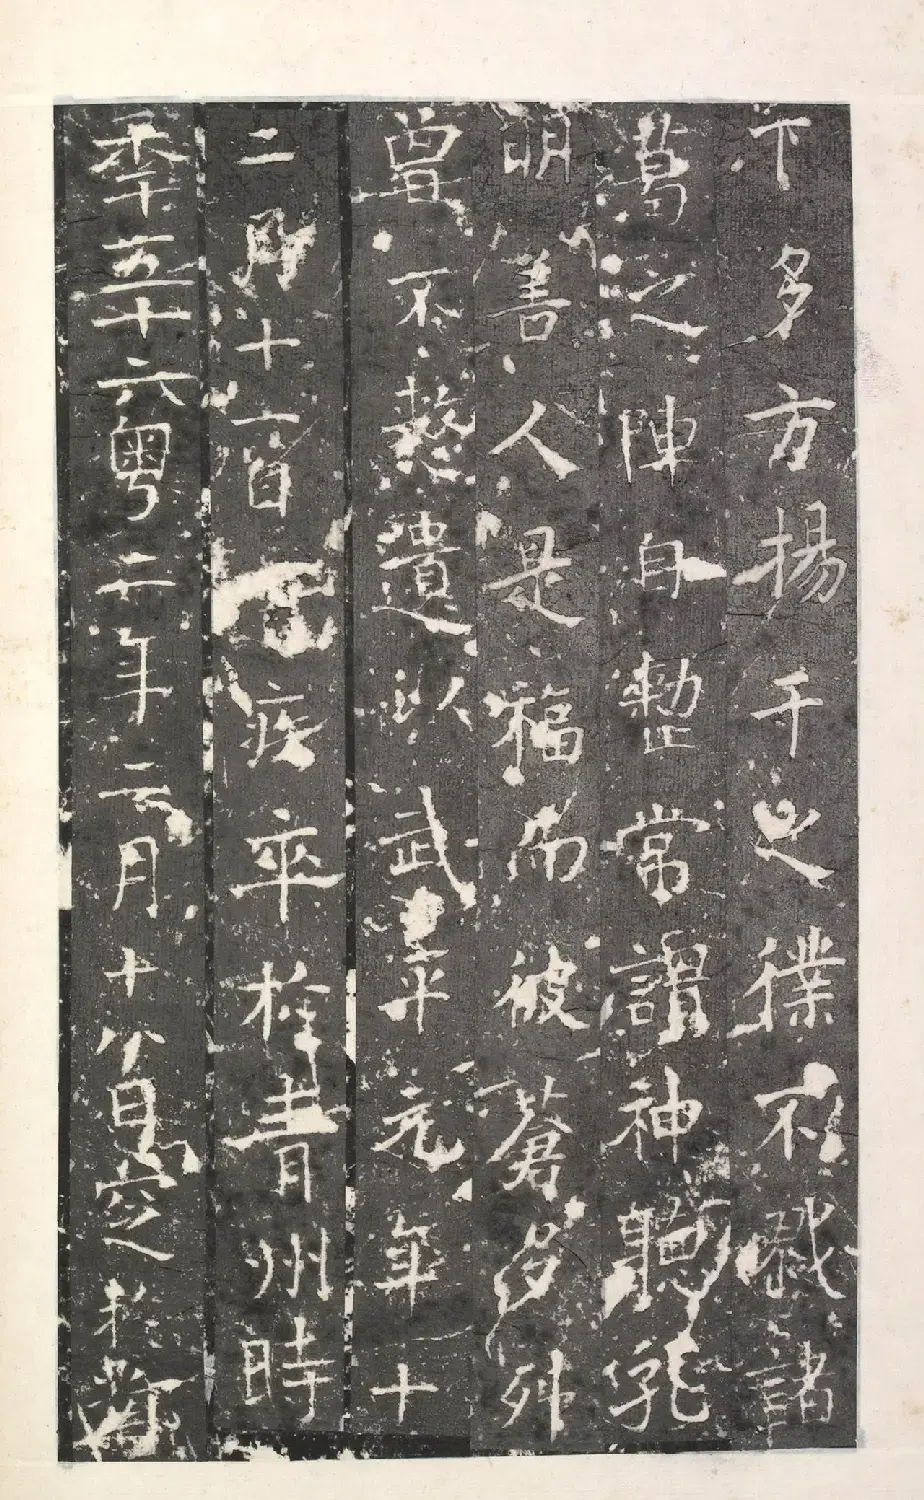 不多方揚千之㩌不戢諸
葛之陣自整常謂神聽孔
明善人是福而彼蒼多舛
曾不憗遺以武平元年十
二月十一日 疾卒於青州時
季五十六粵二年二月十八日窆於